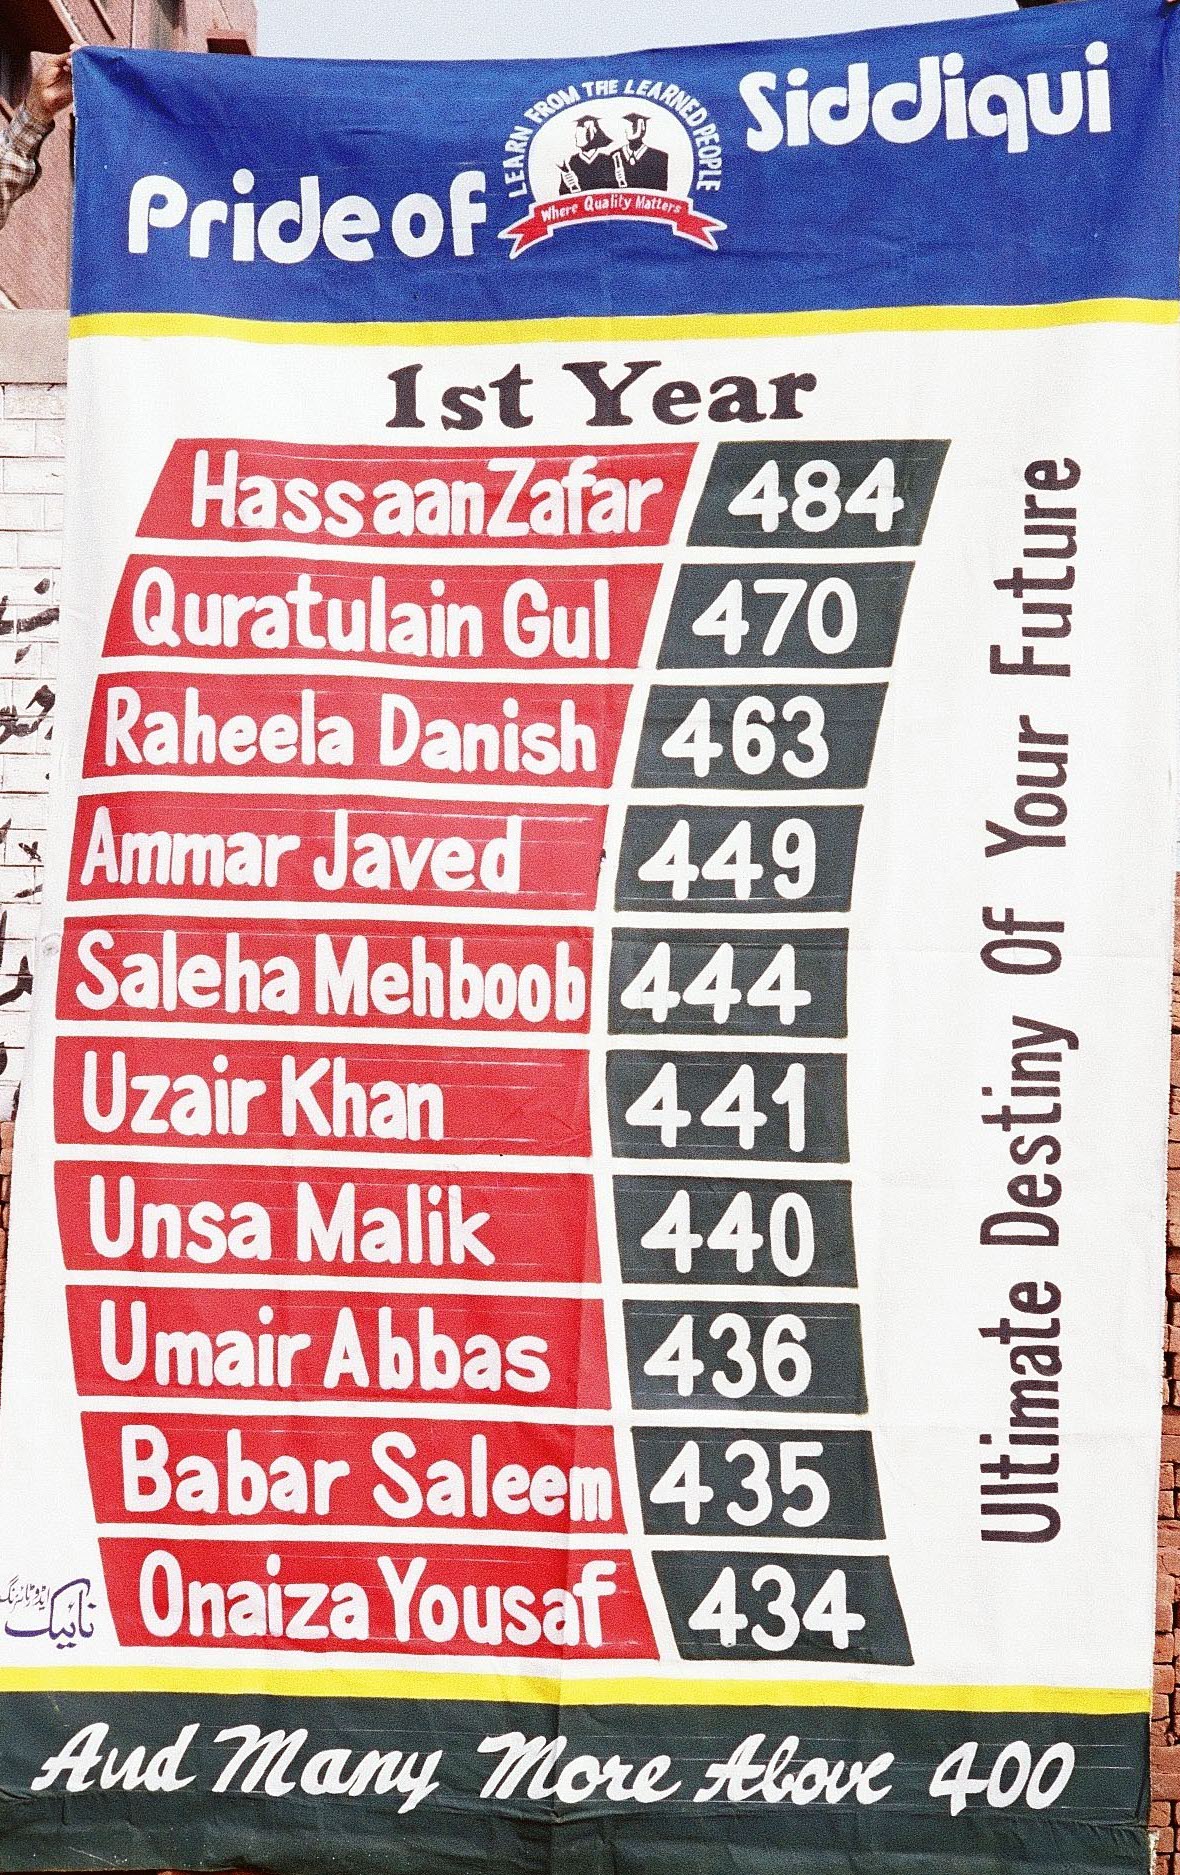 LEARN FROM THE LEARNED PEOPLE
Where Quality Matters
Pride of Siddiqui
1st Year
Hassaan Zafar 484
Quratulain Gul 470
Raheela Danish 463
Ammar Javed 449
Saleha Mehboob 444
Uzair Khan 441
Unsa Malik 440
Umair Abbas 436
Babar Saleem 435
Onaiza Yousaf 434
Ultimate Destiny Of Your Future
نائیک ایڈورٹائزنگ
And Many More Above 400